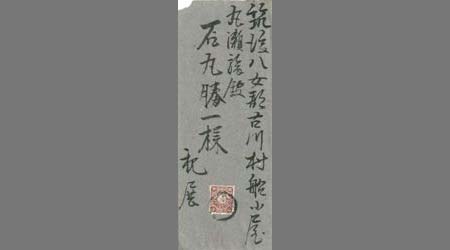 筑後八女郡古川村船小屋
丸瀬旅館
石丸勝一様
親展